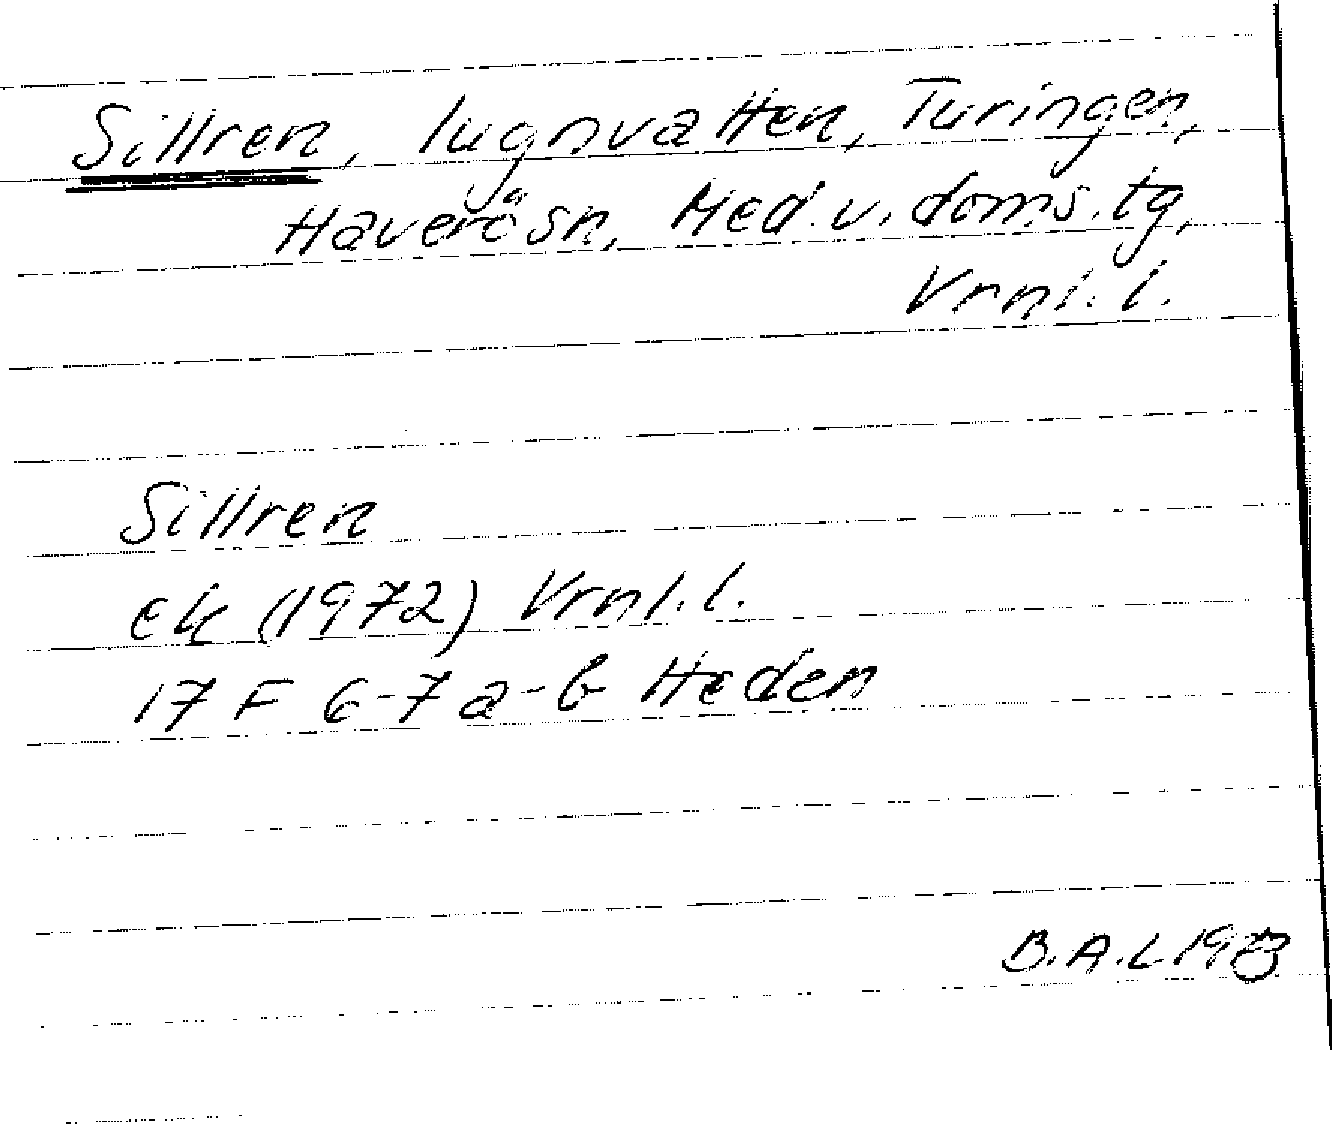 Sillren, lugnvatten, Turingen,
Haverö sn, Med. v. doms. tg,
Vrnl. l.
Sillren
Ek (1972) Vrnl. l.
17 F 6-7 a-b Heden
B.A.L